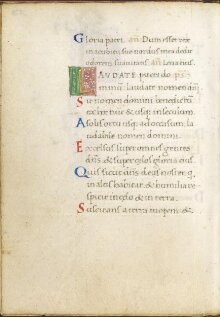 Gloria patri. añ Dum esset rex
in accubitu suo nardus mea dedit
odorem suavitatis. añ Leva eius.
LAUDATE pueri do
minum laudate nomen dñi
Sit nomen domini benedictū
ex hoc nunc & usq; in seculum.
A solis ortu usq; ad occasum, la
udabile nomen domini.
Excelsus super omnes gentes
dñs & super celos gloria eius.
Quis sicut dñs deus noster q̇
in altis habitat & humilia re
spicit in celo & in terra.
Suscitans a terra inopem &